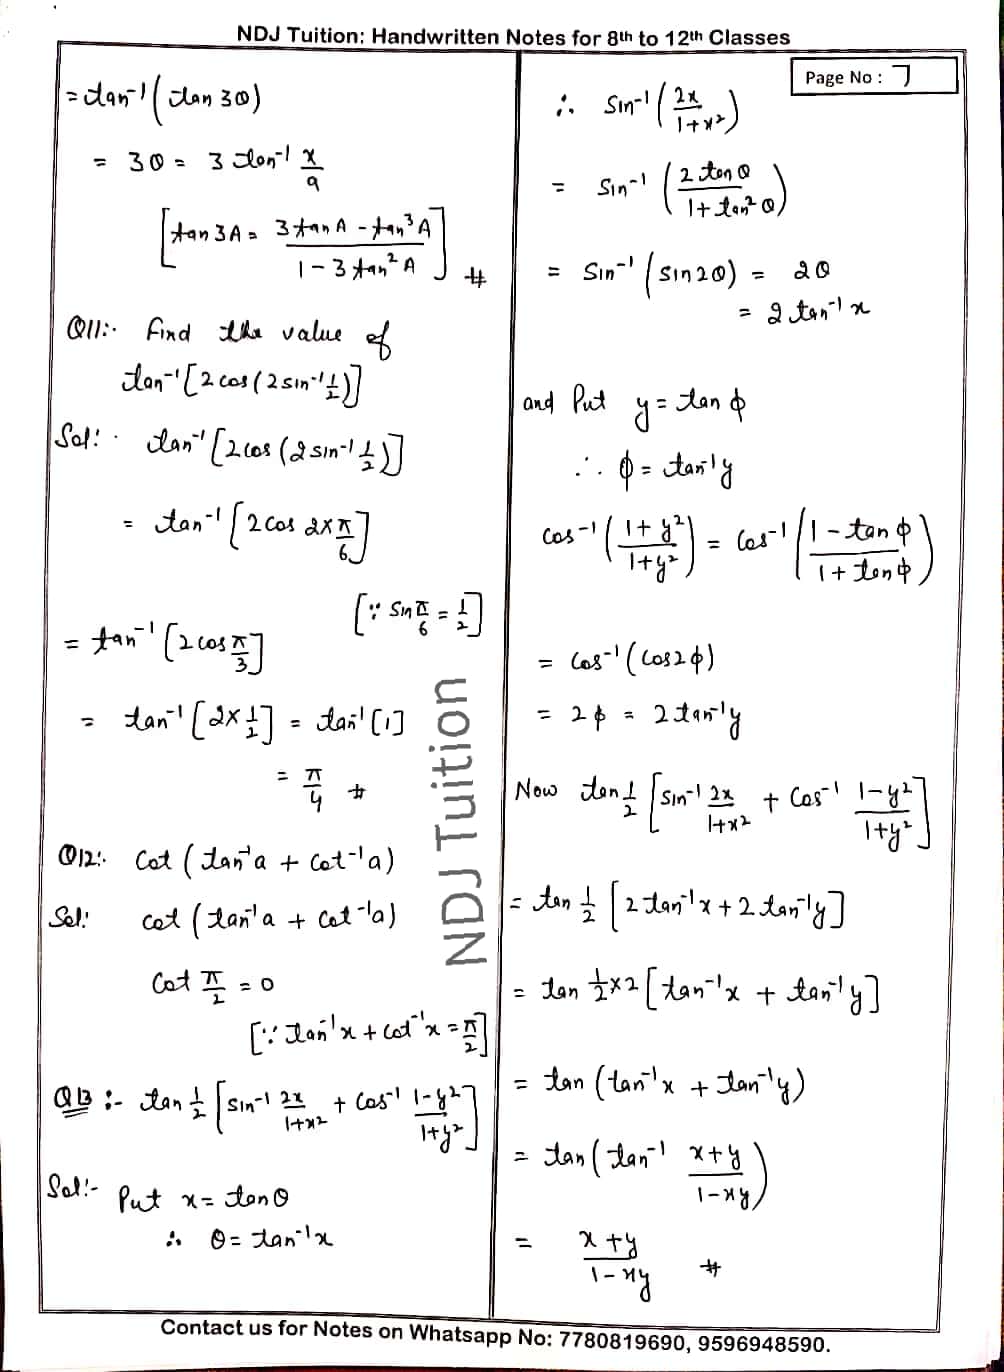 NDJ Tuition: Handwritten Notes for 8th to 12th Classes
Page No : 7
= tan⁻¹(tan 3θ)
= 3θ = 3 tan⁻¹ x/a
[tan 3A = (3 tan A - tan³A)/(1 - 3 tan²A)] #
Q11:- Find the value of
tan⁻¹[2 cos(2 sin⁻¹ 1/2)]
Sol: - tan⁻¹[2 cos(2 sin⁻¹ 1/2)]
= tan⁻¹[2 cos 2×π/6]
[∵ Sin π/6 = 1/2]
= tan⁻¹[2 cos π/3]
= tan⁻¹[2×1/2] = tan⁻¹[1]
= π/4 #
Q12:- Cot (tan⁻¹a + cot⁻¹a)
Sol: cot (tan⁻¹a + cot⁻¹a)
Cot π/2 = 0
[∵ tan⁻¹x + cot⁻¹x = π/2]
Q13 :- tan 1/2 [sin⁻¹ 2x/(1+x²) + Cos⁻¹ (1-y²)/(1+y²)]
Sol:- Put x = tan θ
∴ θ = tan⁻¹x
∴ Sin⁻¹(2x/(1+x²))
= Sin⁻¹(2 tan θ/(1+tan²θ))
= Sin⁻¹(sin 2θ) = 2θ
= 2 tan⁻¹ x
and Put y = tan ϕ
∴ ϕ = tan⁻¹y
Cos⁻¹((1+y²)/(1+y²)) = Cos⁻¹((1 - tan ϕ)/(1 + tan ϕ))
= Cos⁻¹(Cos 2ϕ)
= 2ϕ = 2 tan⁻¹y
Now tan 1/2 [sin⁻¹ 2x/(1+x²) + Cos⁻¹ (1-y²)/(1+y²)]
= tan 1/2 [2 tan⁻¹x + 2 tan⁻¹y]
= tan 1/2×2 [tan⁻¹x + tan⁻¹y]
= tan (tan⁻¹x + tan⁻¹y)
= tan(tan⁻¹ (x+y)/(1-xy))
= (x+y)/(1-xy) #
NDJ Tuition
Contact us for Notes on Whatsapp No: 7780819690, 9596948590.